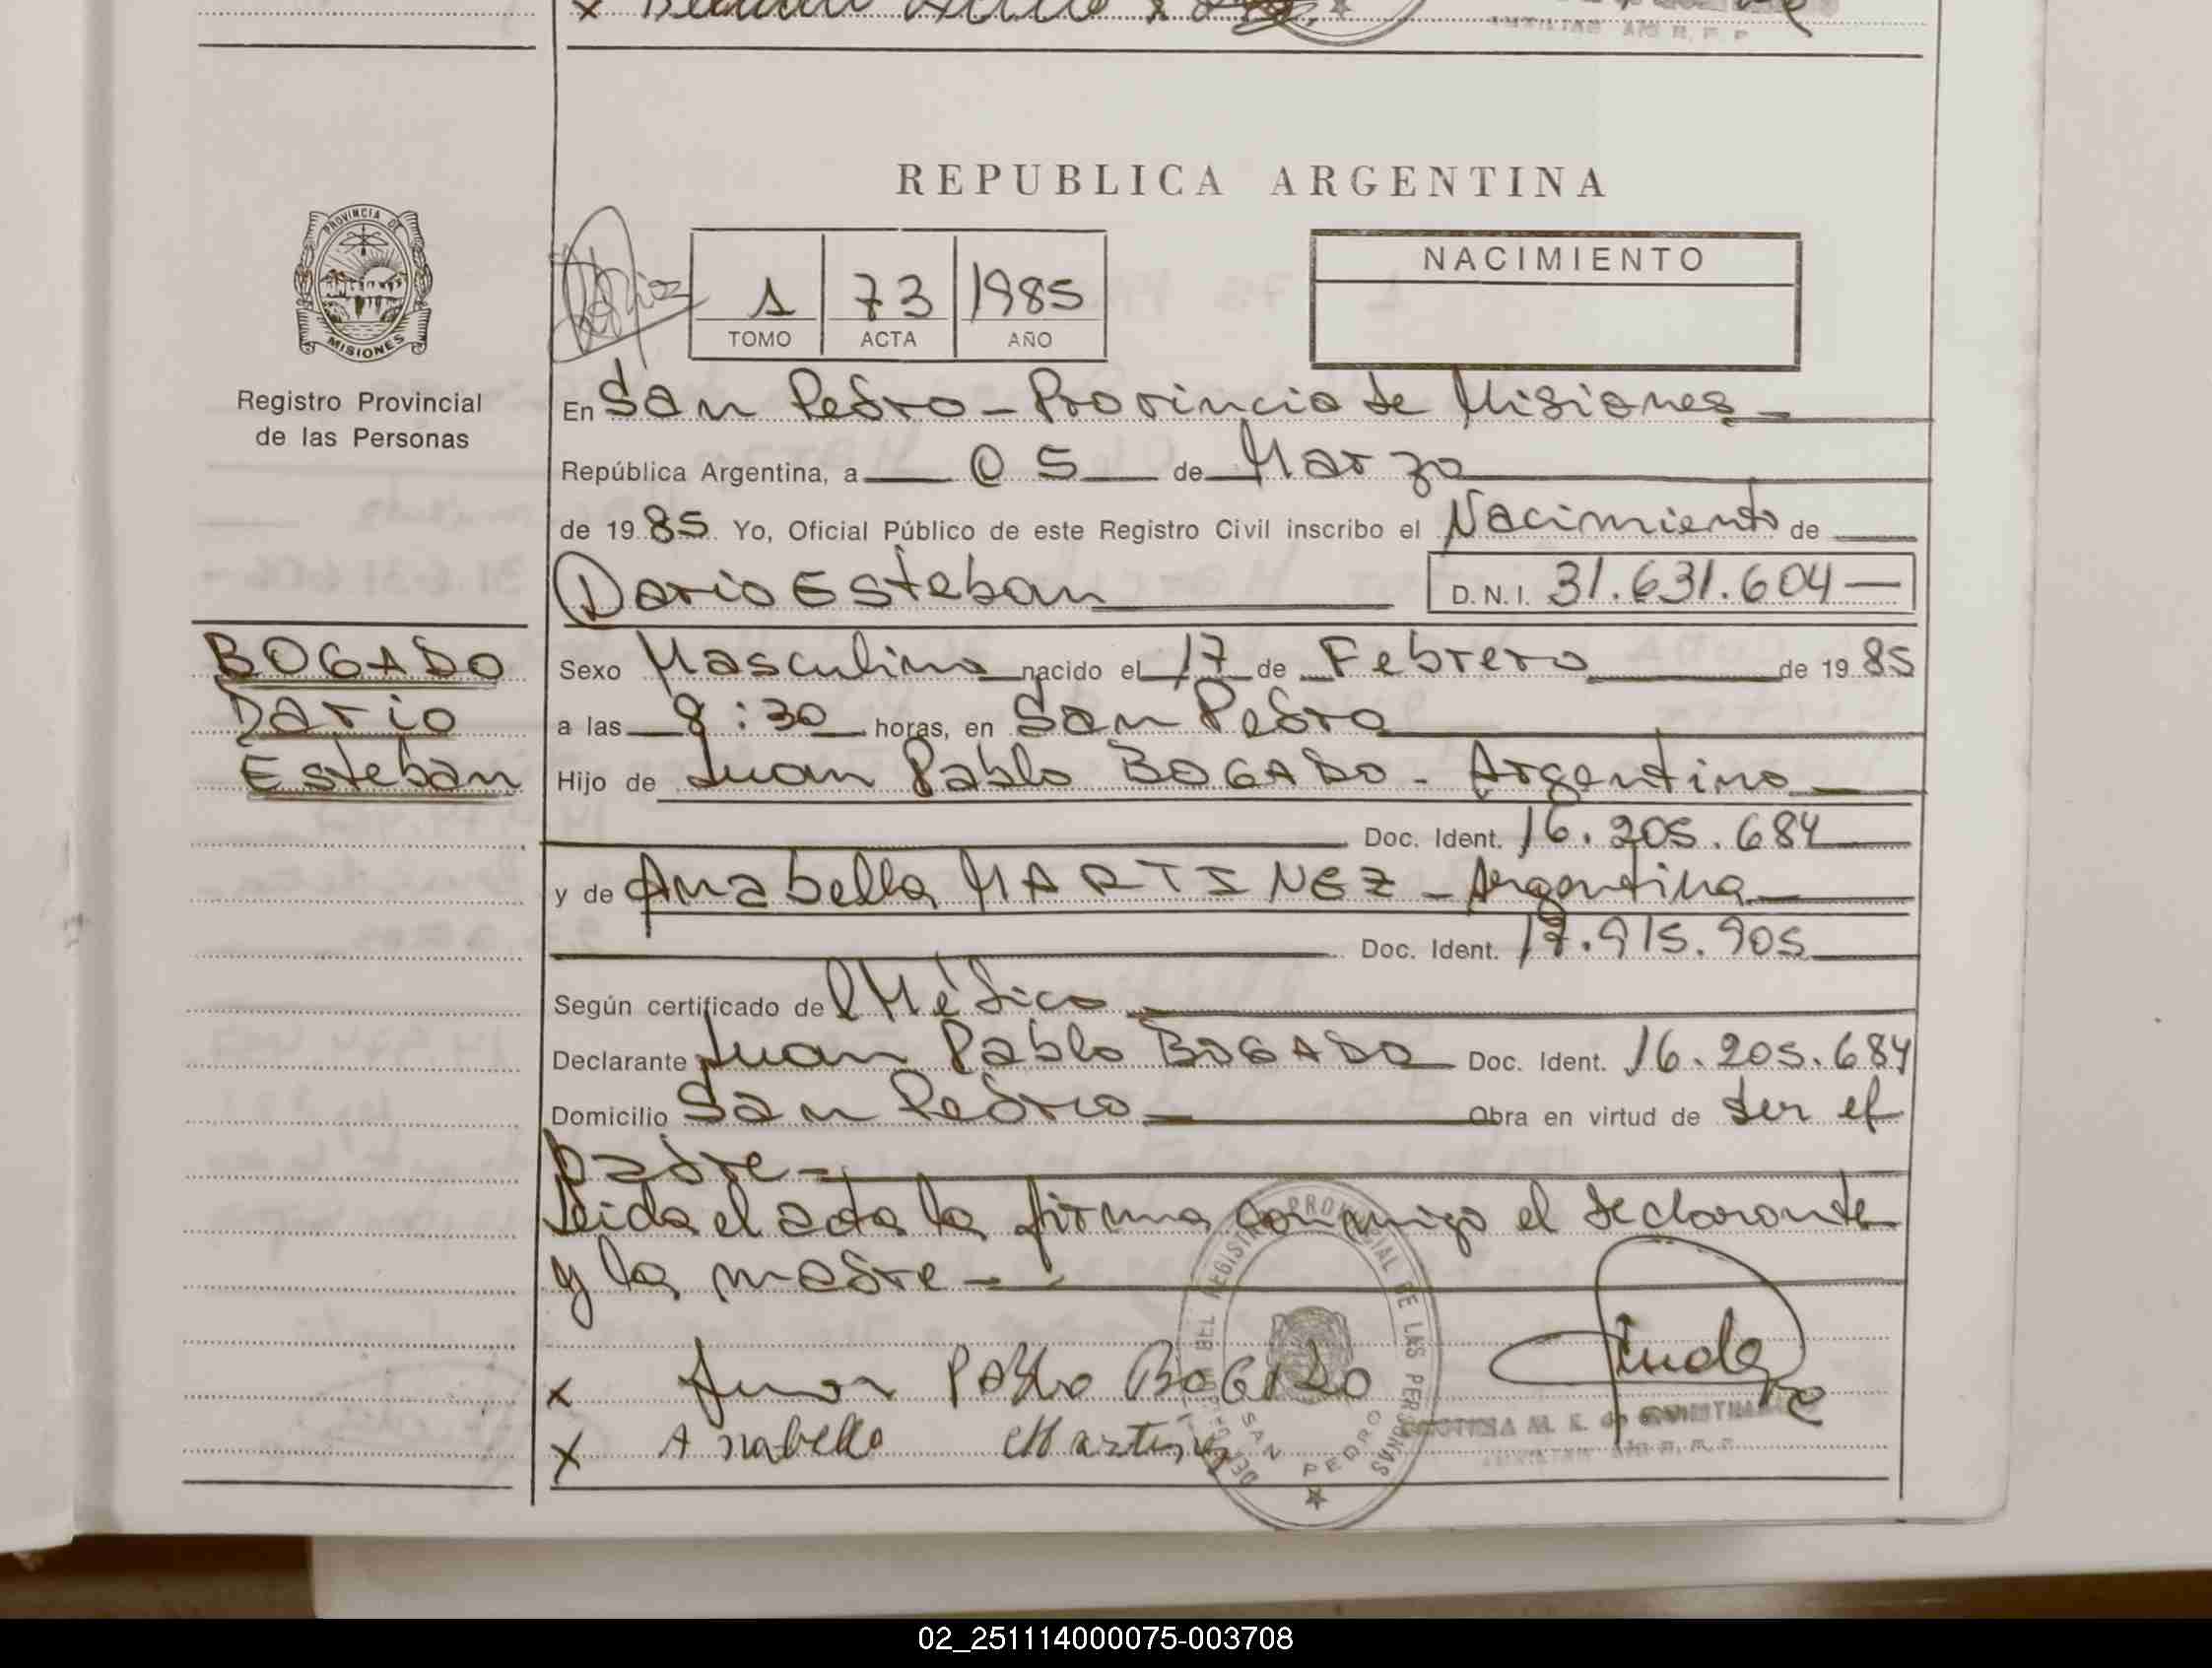 REPUBLICA ARGENTINA
PROVINCIA DE
MISIONES
Registro Provincial
de las Personas
1 73 1985
TOMO ACTA AÑO
NACIMIENTO
En San Pedro - Provincia de Misiones -
República Argentina, a 05 de Marzo
de 1985 Yo, Oficial Público de este Registro Civil inscribo el Nacimiento de
Dario Esteban D.N.I. 31.631.604 —
BOGADO
Dario
Esteban
Sexo Masculino nacido el 17 de Febrero de 1985
a las 8:30 horas, en San Pedro
Hijo de Juan Pablo BOGADO - Argentino
Doc. Ident. 16.205.684
y de Anabella MARTINEZ - Argentina
Doc. Ident. 17.915.905
Según certificado del Médico
Declarante Juan Pablo BOGADO Doc. Ident. 16.205.684
Domicilio San Pedro Obra en virtud de ser el
padre -
Leida el acta la firma conmigo el declarante
y la madre -
x Juan Pablo BOGADO
x Anabella Martinez
REGISTRO PROVINCIAL DE LAS PERSONAS
SAN PEDRO
02_251114000075-003708